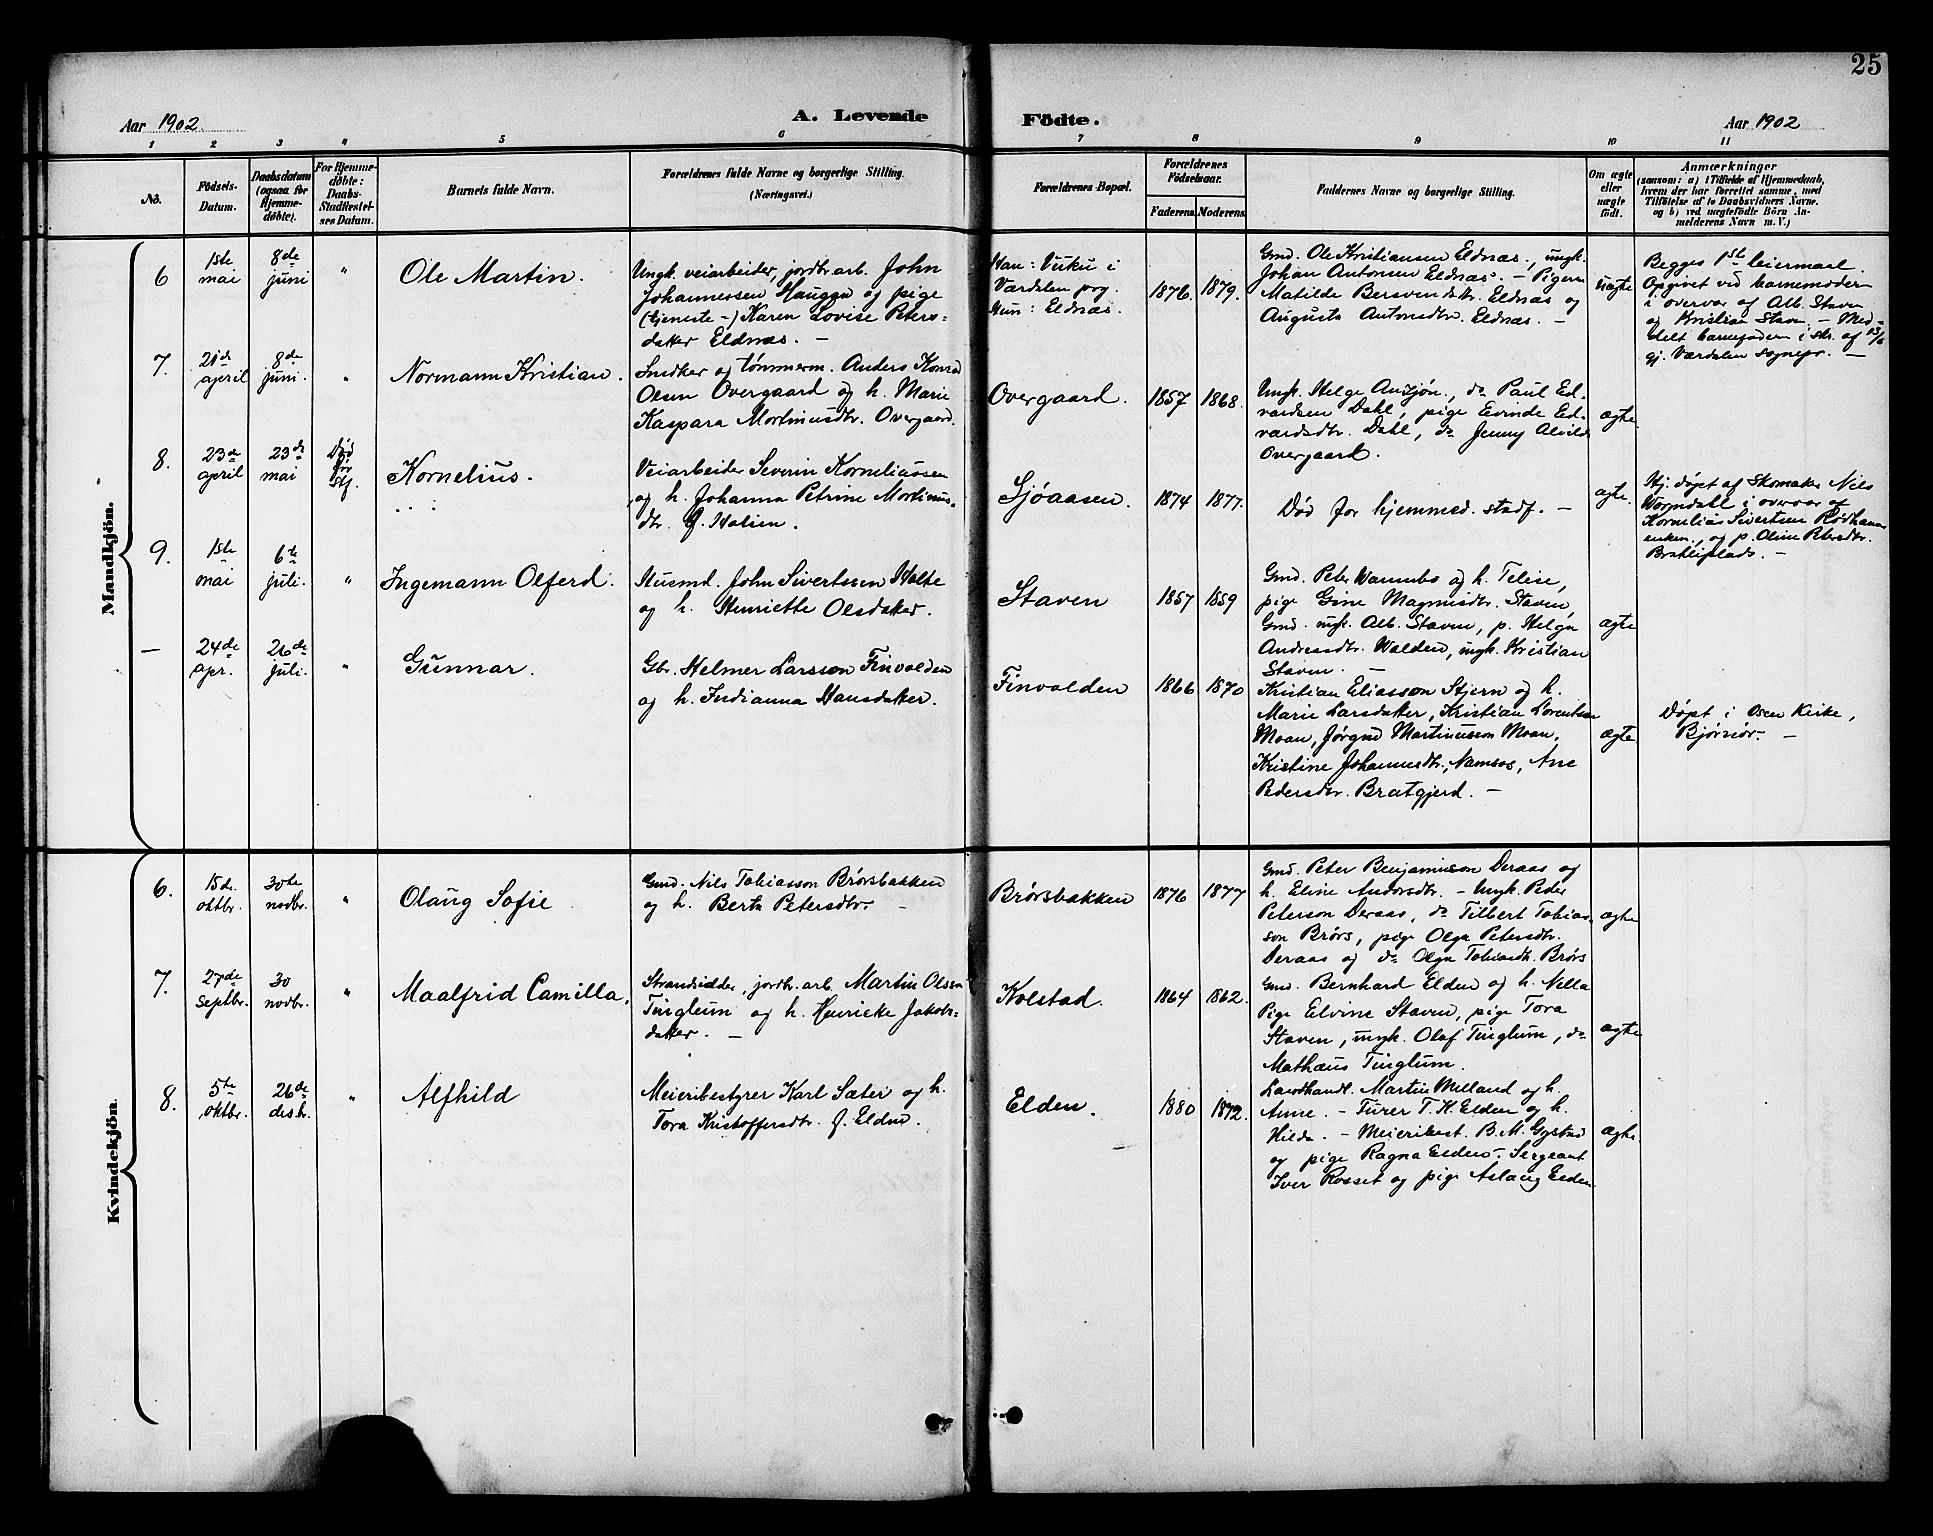 25
Aar 1902.
A. Levende Födte.
Aar 1902
1 2 3 4 5 6 7 8 9 10 11
No.
Födsels-
Datum.
Daabsdatum
(ogsaa for
Hjemme-
döbte).
For Hjemme-
döbte:
Daabs-
Stadfæstel-
ses Datum.
Barnets fulde Navn.
Forældrenes fulde Navne og borgerlige Stilling.
(Næringsvei.)
Forældrenes Bopæl.
Forældrenes
Födselsaar.
Faderens. Moderens.
Faddernes Navne og borgerlige Stilling.
Om ægte
eller
uægte
födt.
Anmærkninger
(saasom: a) i Tilfælde af Hjemmedaab,
hvem der har forrettet samme, med
Tilföielse af to Daabsvidners Navne.
og b) ved uægtefödte Börn An-
melderens Navn m. V.)
Mandkjön.
6
1ste
mai
8de
juni
"
Ole Martin.
Ungk. veiarbeider, jordbr. arb. John
Johannessen Haugen og pige
(tjeneste-) Karen Lovise Peters-
datter Eldnæs. —
Han: Vuku i
Værdalen prg.
Hun: Eldnæs.
1876. 1879.
Gmd. Ole Kristiansen Eldnæs., ungk.
Johan Antonsen Eldnæs. — Pigerne
Matilde Bersvendsdtr. Eldnæs og
Augusta Antonsdtr. Eldnæs. —
uægte
Begges 1ste leiermaal.
Opgivet ved barnemoderen
i overvær af Alb. Staven
og Kristian Staven. — Med-
delt barnefaderen i skr. af 13/6
gj. Værdalen sognepr. —
7.
21de
april
8de
juni.
"
Normann Kristian.
Snedker og tømmerm. Anders Konrad
Olsen Overgaard og h. Marie
Kaspara Mortinusdtr. Overgaard.
Overgaard.
1857 1868.
Ungk. Helge Ausjøn., do Paul Ed-
vardsen Dahl, pige Evinde Ed-
vardsdtr. Dahl, do Jenny Alvilde
Overgaard.
ægte
8.
23de
april
23de
mai
Død
før
stf.
Kornelius.
Veiarbeider Severin Korneliussen
og h. Johanna Petrine Mortinus-
dtr. f. Holien.
Sjøaasen.
1874 1877.
Død før hjemmed. stadf. —
ægte.
Hj. døpt af Skomaker Nils
Worndahl i overvær af
Kornelius Sivertsen Rødhamm
enken., og p. Oline Petersdtr.
Bratliplads. —
9.
1ste
mai
6te
juli.
"
Ingemann Olferd.
Husmd. John Sivertssen Holte
og h. Henriette Olsdatter.
Staven
1857 1859
Gmd. Peter Wannebo og h. Telise,
pige Gine Magnusdtr. Staven,
Gmd. ungk. Alb. Staven, p. Helga
Andreasdtr. Walden, ungk. Kristian
Staven. —
ægte
—
24de
apr.
26de
juli.
"
Gunnar.
Gbr. Helmer Larsson Finvolden
og h. Indianna Hansdatter.
Finvolden
1866 1870
Kristian Eliasson Stjern og h.
Marie Larsdatter, Kristian Lorentsen
Moan, Jørgine Martinusson Moan,
Kristine Johannesdtr., Namsos, Ane
Pedersdtr. Bratgjerd. —
ægte
Døpt i Osen Kirke,
Bjørnør. —
Kvindekjön
6.
15de
oktbr.
30te
novbr.
"
Olaug Sofie
Gmd. Nils Tobiasson Brørsbakken
og h. Berta Petersdtr. —
Brørsbakken
1876 1877
Gmd. Peter Benjaminson Deraas og
h. Eline Andorsdtr. — Ungk. Peder
Peterson Deraas, do Tilbert Tobias-
son Brørs, pige Olga Petersdtr.
Deraas og do Olga Tobiasdtr. Brørs
ægte
7.
27de
septbr.
30
novbr.
"
Maalfrid Camilla.
Strandsidder, jordbr. arb. Martin Olsen
Tinglum og h. Henrikke Jakobs-
datter. —
Kolstad.
1864 1862.
Gmd. Bernhard Elden og h. Nella
Pige Elvine Staven, pige Tora
Staven, ungk. Olaf Tinglum, do
Mathæus Tinglum.
ægte
8.
5te
oktbr.
26de
desbr.
"
Alfhild
Meieribestyrer Karl Sæter og h.
Tora Kristoffersdtr. f. Elden.
Elden.
1880 1872.
Landhandl. Martin Melland og h.
Anne. — Furer T. K. Elden og h.
Hilda. — Meieribest. B. M. Gystad
og pige Ragna Elden. Sergeant
Iver Rosset og pige Aslaug Elden
ægte